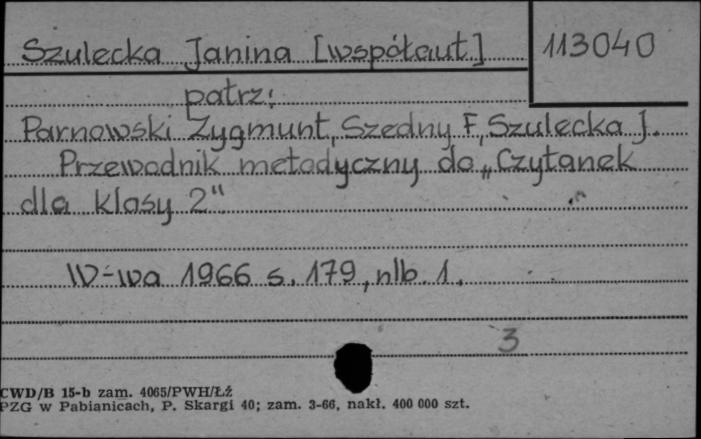 Szulecka Janina [współaut.] 113040
patrz:
Parnowski Zygmunt, Szedny F., Szulecka J.
Przewodnik metodyczny do „Czytanek
dla klasy 2"
W-wa 1966 s. 179, nlb. 1.
3
CWD/B 15-b zam. 4065/PWH/Łź
PZG w Pabianicach, P. Skargi 40; zam. 3-66, nakł. 400 000 szt.